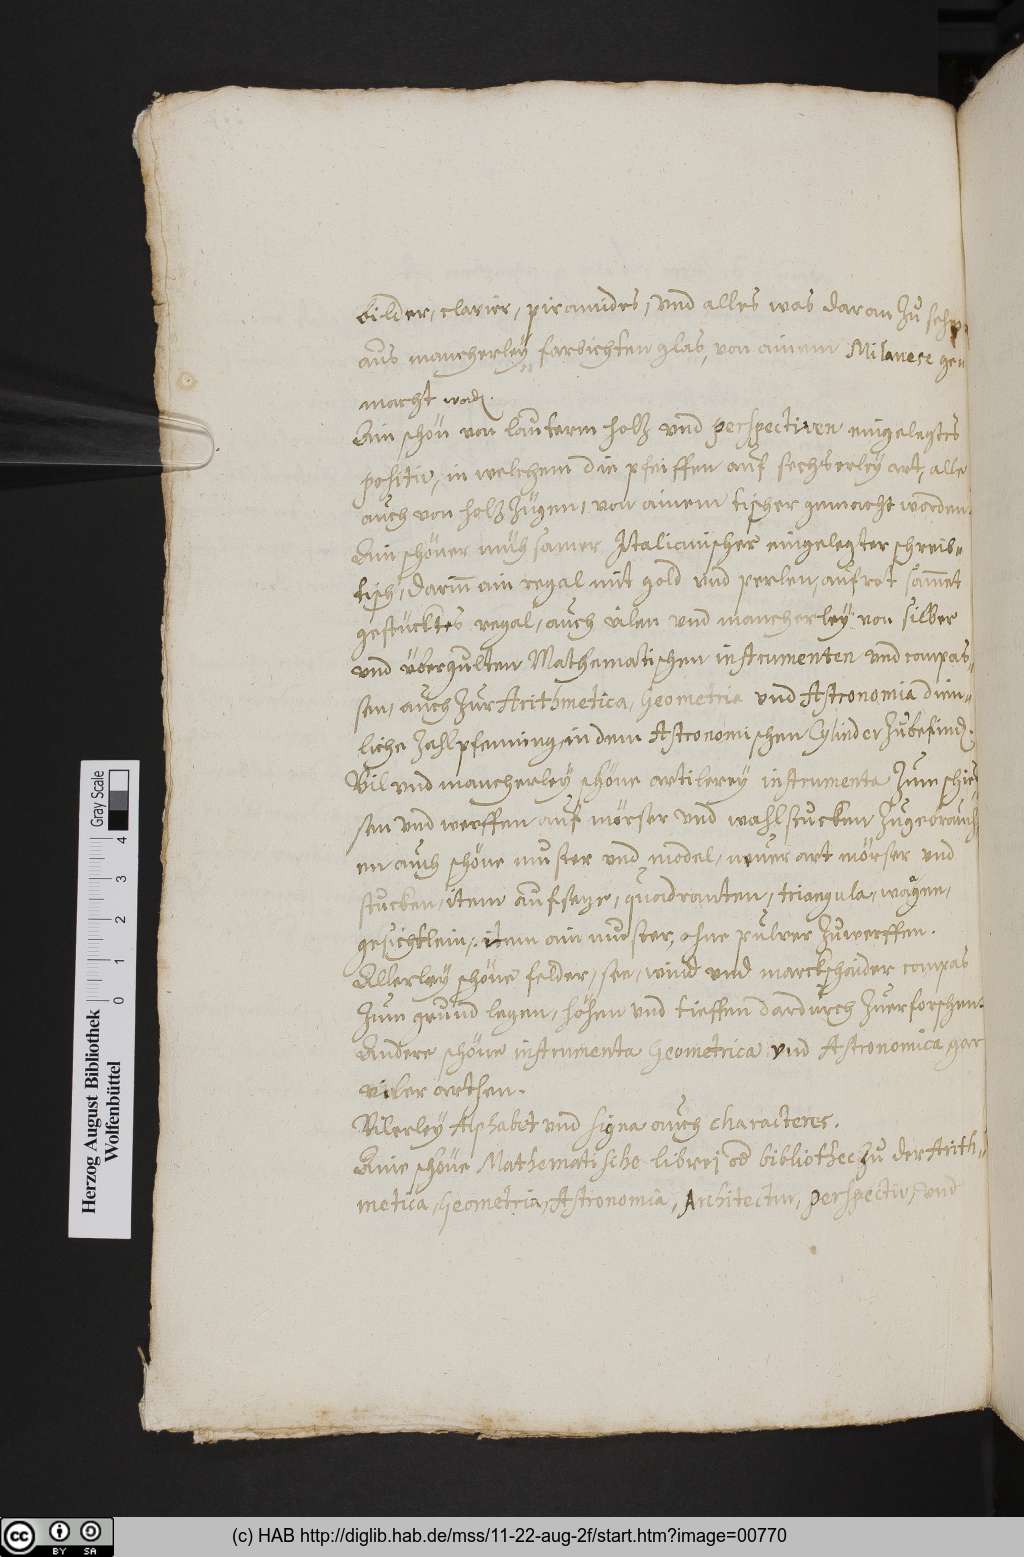 bilder, clavier, piramides, vnd alles was daran zu sehen
aus mancherley farbichten glas, von ainem Milanese ge⸗
macht word.
Ain schön von lauterm holz vnd perspectiven eingelegtes
positiv, in welchem die pfeiffen auf sechserley art, alle
auch von holz zügen, von ainem tischer gemacht worden.
Ain schöner mühsamer Italianischer eingelegter schreib⸗
tisch, darin̅ ain regal mit gold vnd perlen, auf rot sam̅et
gestücktes regal, auch vilen vnd mancherley von silber
vnd übergulten Mathematischen instrumenten vnd compas⸗
sen, auch zur Arithmetica, Geometria vnd Astronomia dien⸗
liche zahlpfenning, in dem Astronomischen Cylinder zubefind.
Vil vnd mancherley schöne artilerey instrumenta zum schies
sen vnd werffen auf mörser vnd wahlstucken zugebrauch
en auch schöne muster vnd model, neuer art mörser vnd
stucken, item aufsetze, quadranten, triangula, wägen,
gesichtlein, item ain muster, ohne pulver zuwerffen.
Allerley schöne felder, see, wind vnd marckschaider compas
zum grund legen, höhen vnd tieffen dardurch zuerforschen.
Andere schöne instrumenta Geometrica vnd Astronomica, gar
viler arthen.
Vilerley Alphabet vnd signa auch characteres.
Aine schöne Mathematische librej od bibliothec zu der Arith⸗
metica, Geometria, Astronomia, Architectur, perspectiv, vnd
Herzog August Bibliothek
Wolfenbüttel
0 1 2 3 4
Gray Scale
cc BY SA
(c) HAB http://diglib.hab.de/mss/11-22-aug-2f/start.htm?image=00770